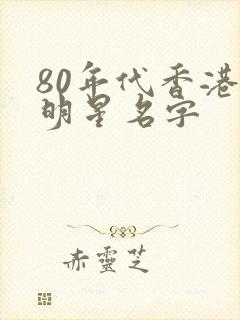 80年代香港
明星名字
赤靈芝